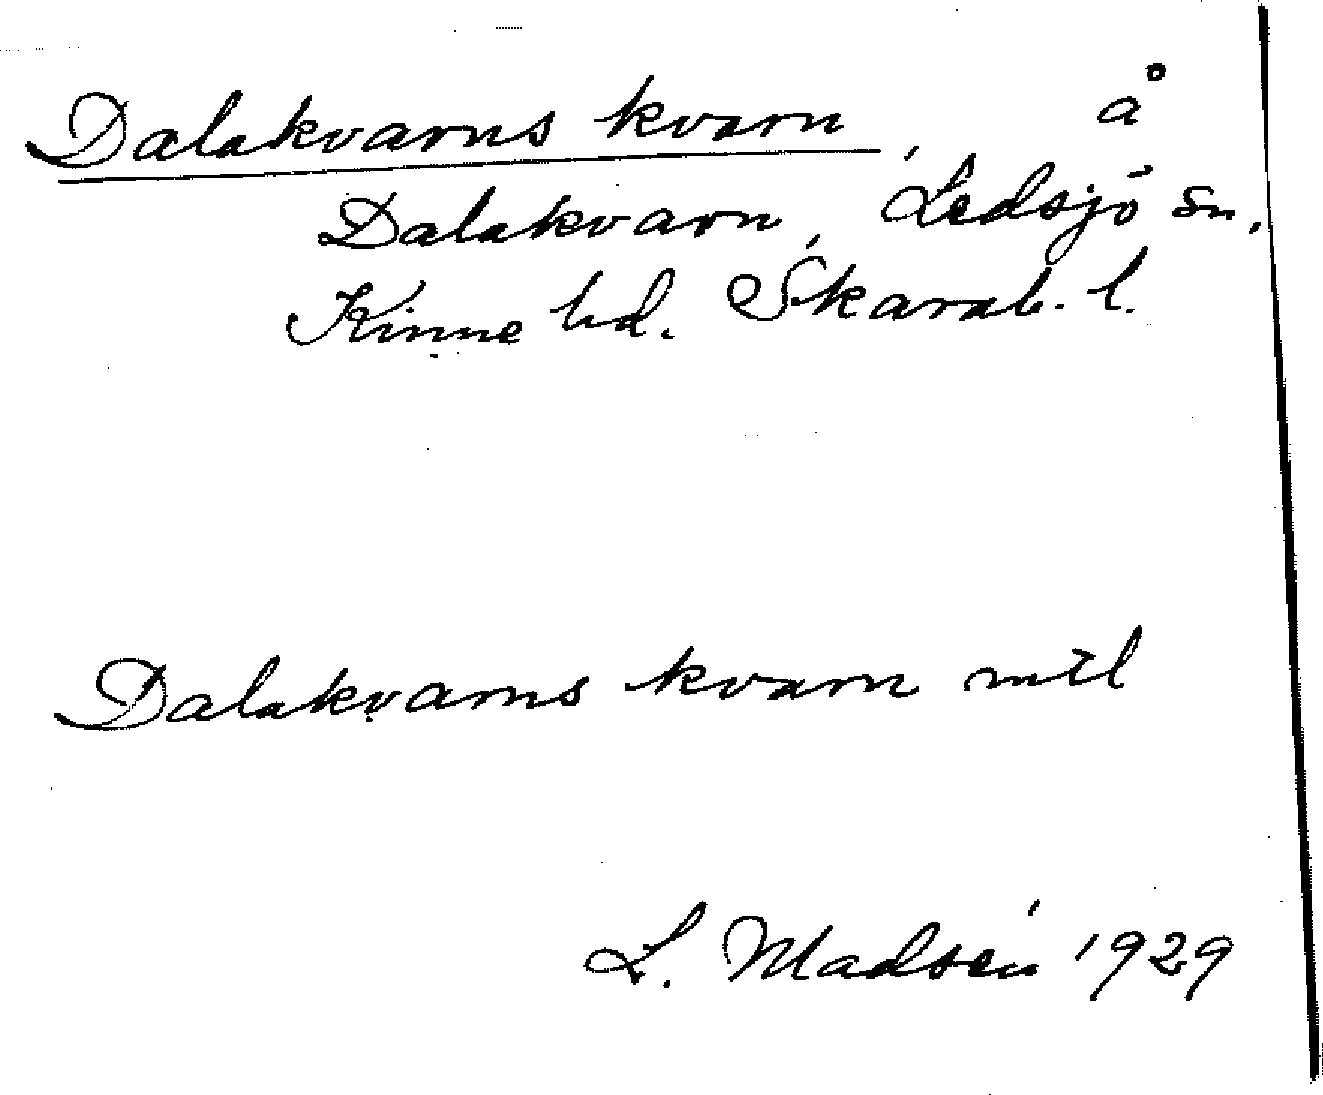 Dalakvarns kvarn, å
Dalakvarn, Ledsjö sn,
Kinne hd. Skarab. l.
Dalakvarns kvarn mtl
L. Madsén 1929